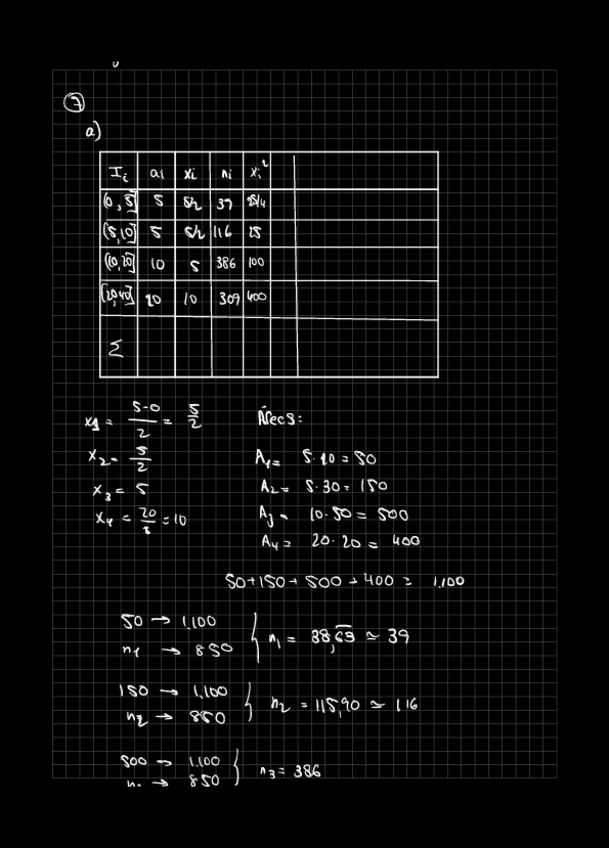 7
a)
Ii ai xi ni xi²
(0,5] 5 5/2 39 25/4
(5,10] 5 5/2 116 25
(10,20] 10 5 386 100
(20,40] 20 10 309 400
Σ
x1 = 5-0/2 = 5/2 Áreas:
x2 = 5/2 A1 = 5·10 = 50
x3 = 5 A2 = 5·30 = 150
x4 = 20/2 = 10 A3 = 10·50 = 500
A4 = 20·20 = 400
50+150+500+400 = 1.100
50 → 1.100
n1 → 850 } n1 = 38,63 ≃ 39
150 → 1.100
n2 → 850 } n2 = 115,90 ≃ 116
500 → 1.100
→ 850 } n3 = 386